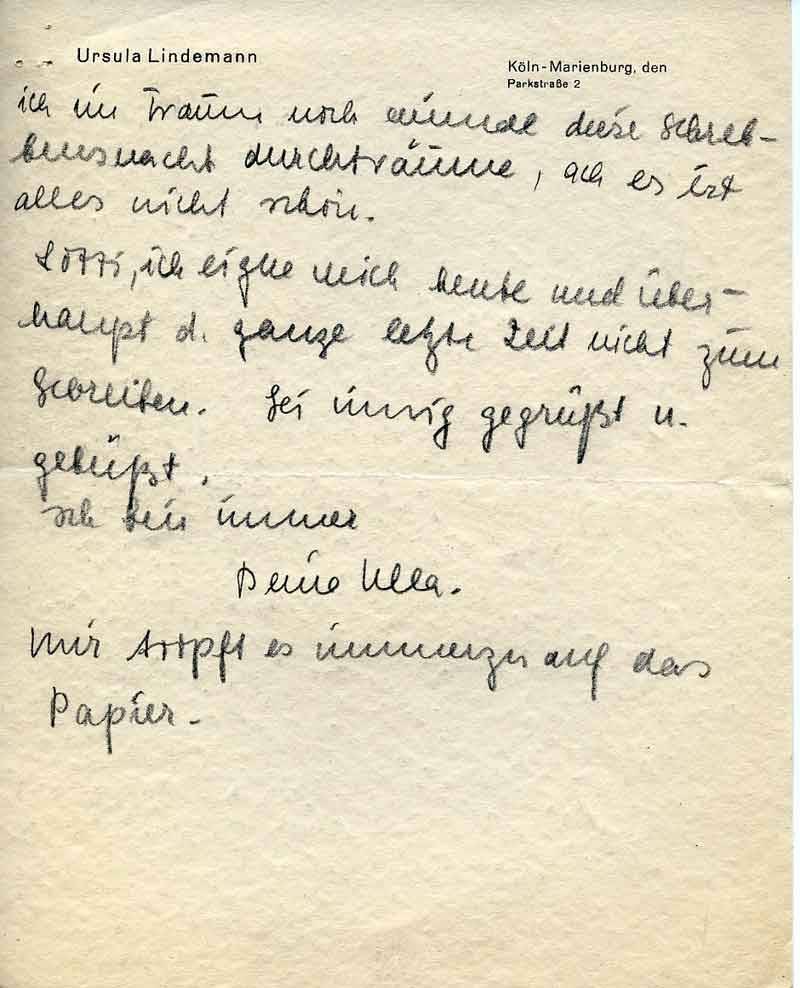 Ursula Lindemann
Köln-Marienburg, den
Parkstraße 2
ich im Traum noch einmal diese Schrek-
kensnacht durchträume, ach es ist
alles nicht schön.
Lotti, ich eigne mich heute und über-
haupt d. ganze letzte Zeit nicht zum
Schreiben. Sei innig gegrüßt u.
geküßt,
ich bin immer
Deine Ulla.
Mir tropft es immerzu auf das
Papier.